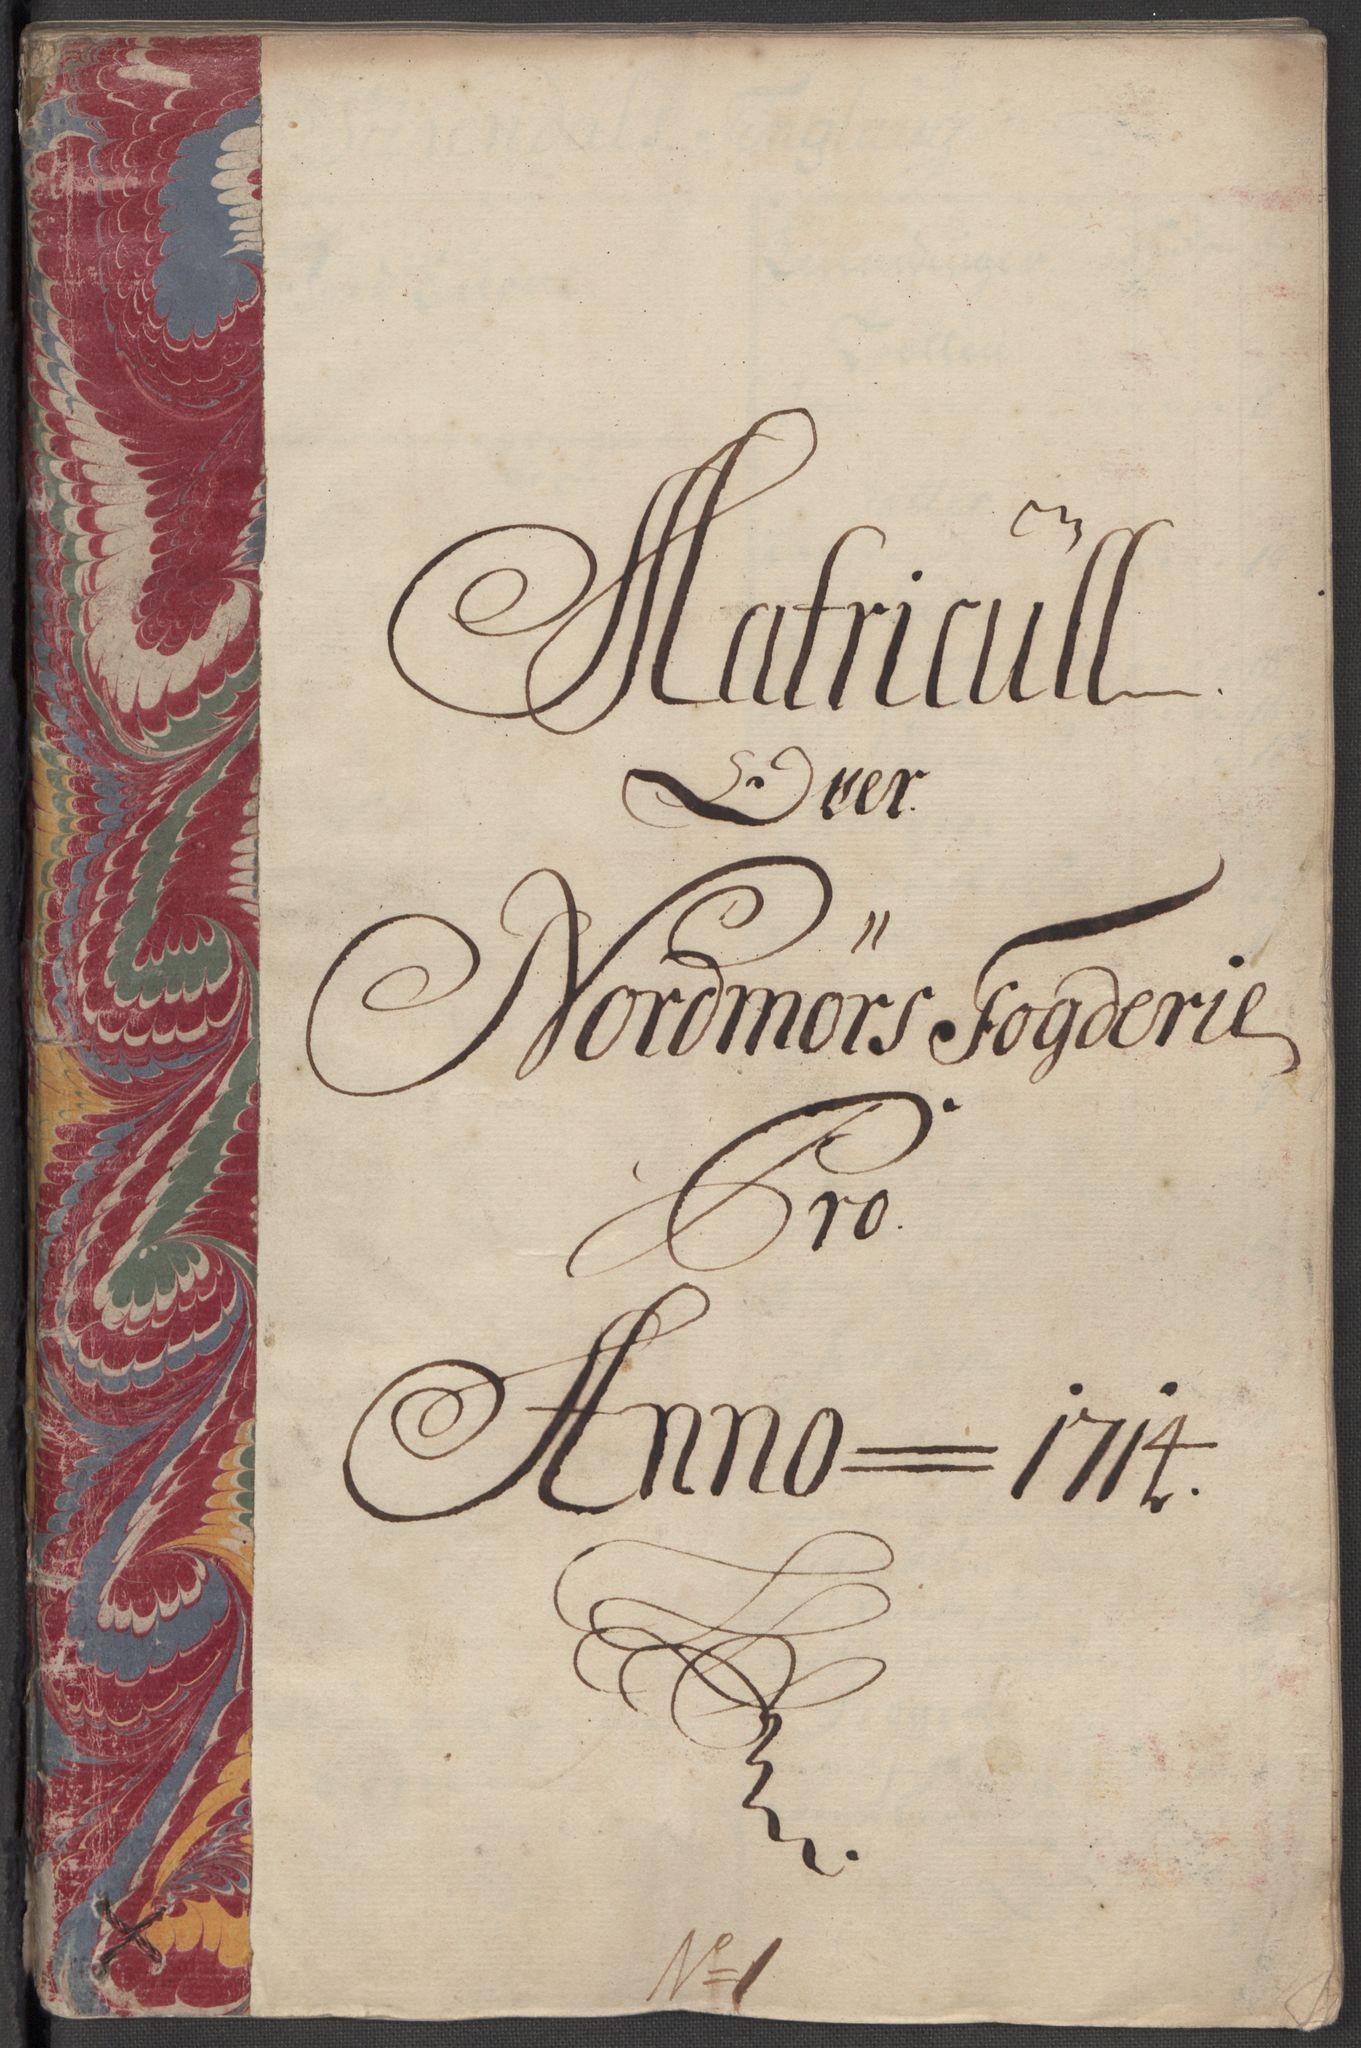 Matricŭll
Over
Nordmörs Fogderie
Pro
Anno = 1714.
No 1